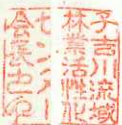 子吉川流域
林業活性化
センター
会長之印